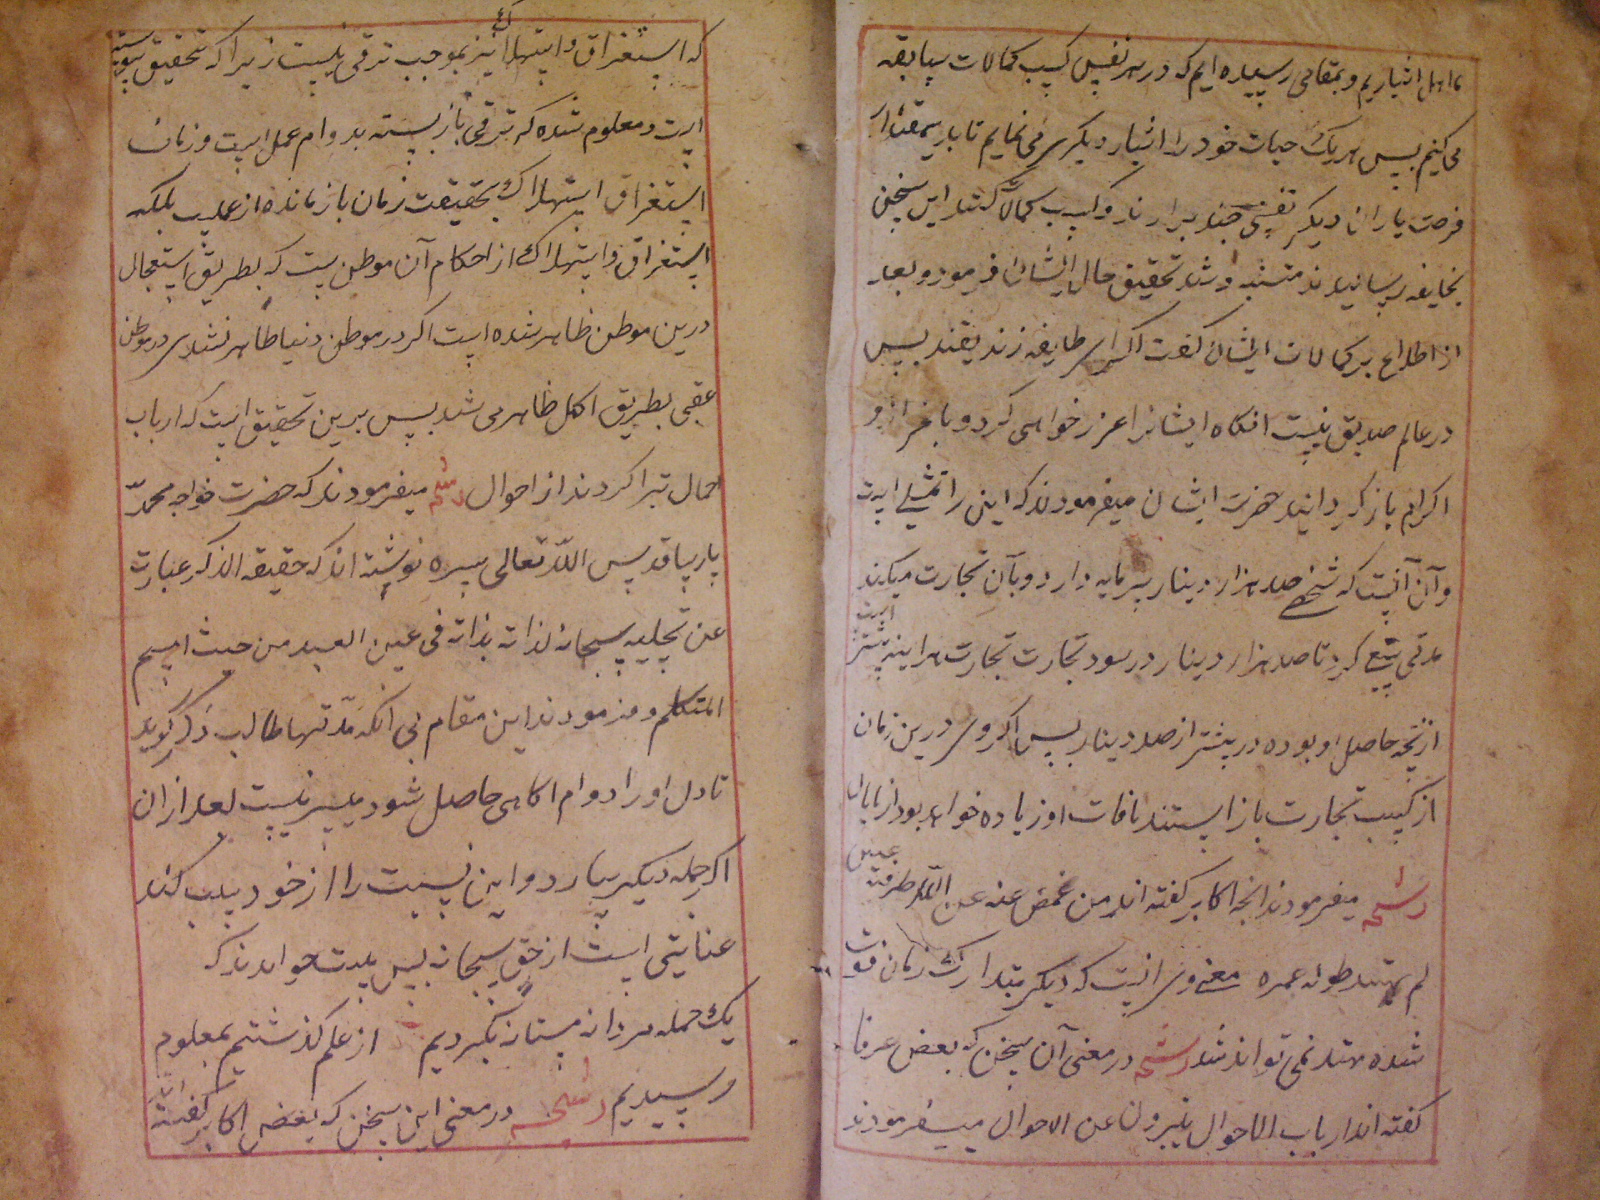 ما اهل ایثاریم و بمقامی رسیده ایم که در هر نفس کسب کمالات سابقه
می کنیم پس هر یک حیات خود را ایثار دیگری می نمایم تا باین مقدار
فرصت یاران دیگر نفسی چند برارند و کسب کمالات کنند این سخن
بخلیفه رسانیدند متنبه و شد تحقیق حال ایشان فرمود و بعد
از اطلاع بر کمالات ایشان گفت اگر این طایفه زندیقند پس
در عالم صدیق نیست انگاه ایشانرا عذر خواهی کرد و با عزاز و
اکرام باز گردانید حضرت ایشان میفرمودند که این را تمثیلی است
و آن آنست که شخصی صد هزار دینار سرمایه دارد و بآن تجارت میکند
مدتی سعی کرد تا صد هزار دینار در سود تجارت تجارت هر اینه بیشتر است
ازنچه حاصل او بوده در بیشتر از صد دینار پس اگر وی درین زمان
از کسب تجارت باز ایستد مافات او زیاده خواهد بود از
رشحه میفرمودند انچه اکابر گفته اند من غمض عینه عن الله طرفة عین
لم یهتد طول عمره معنی وی انست که دیگر بتدارک زمان فوت
شده مهتد نمی تواند شد رشحه در معنی آن سخن که بعض عرفا
گفته اند ارباب الاحوال یتبرون عن الاحوال میفرمودند
که استغراق و استهلاک نیز بموجب ترقی نیست زیرا که تحقیق پیوسته
است و معلوم شده که ترقی باز بسته بدوام عمل است و زمان
استغراق استهلاک بحقیقت زمان باز مانده از عملست بلکه
استغراق و استهلاک از احکام آن موطن ست که بطریق استعجال
درین موطن ظاهر شده است اگر در موطن دنیا ظاهر نشدی در موطن
عقبی بطریق اکمل ظاهر می شد پس برین تحقیق است که ارباب
احمال تبرا کردند از احوال رشحه میفرمودند که حضرت خواجه محمد
پارسا قدس الله تعالی سره نوشته اند که حقیقه الذکر عبارت
عن تجلیه سبحانه لذاته بذاته فی عین العبد من حیث اسم
المتکلم و فرمودند این مقام بی انکه مدتها طالب ذکر گوید
تا دل او را دوام اکاهی حاصل شود میسر نیست بعد ازان
اگر حمله دیگر بیارد و این نسبت را از خود سلب کند
عنایتی است از حق سبحانه پس بلدت خواهد که
یک حمله مردانه مستانه بکردیم از علم گذشتیم بمعلوم
رسیدیم رشحه در معنی این سخن که بعض اکابر گفته اند